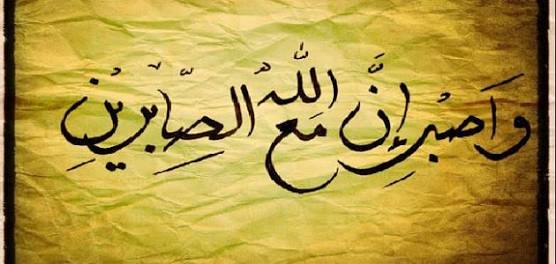 وَاصبِر إِنَّ اللّهُ مَع الصّابِرِين